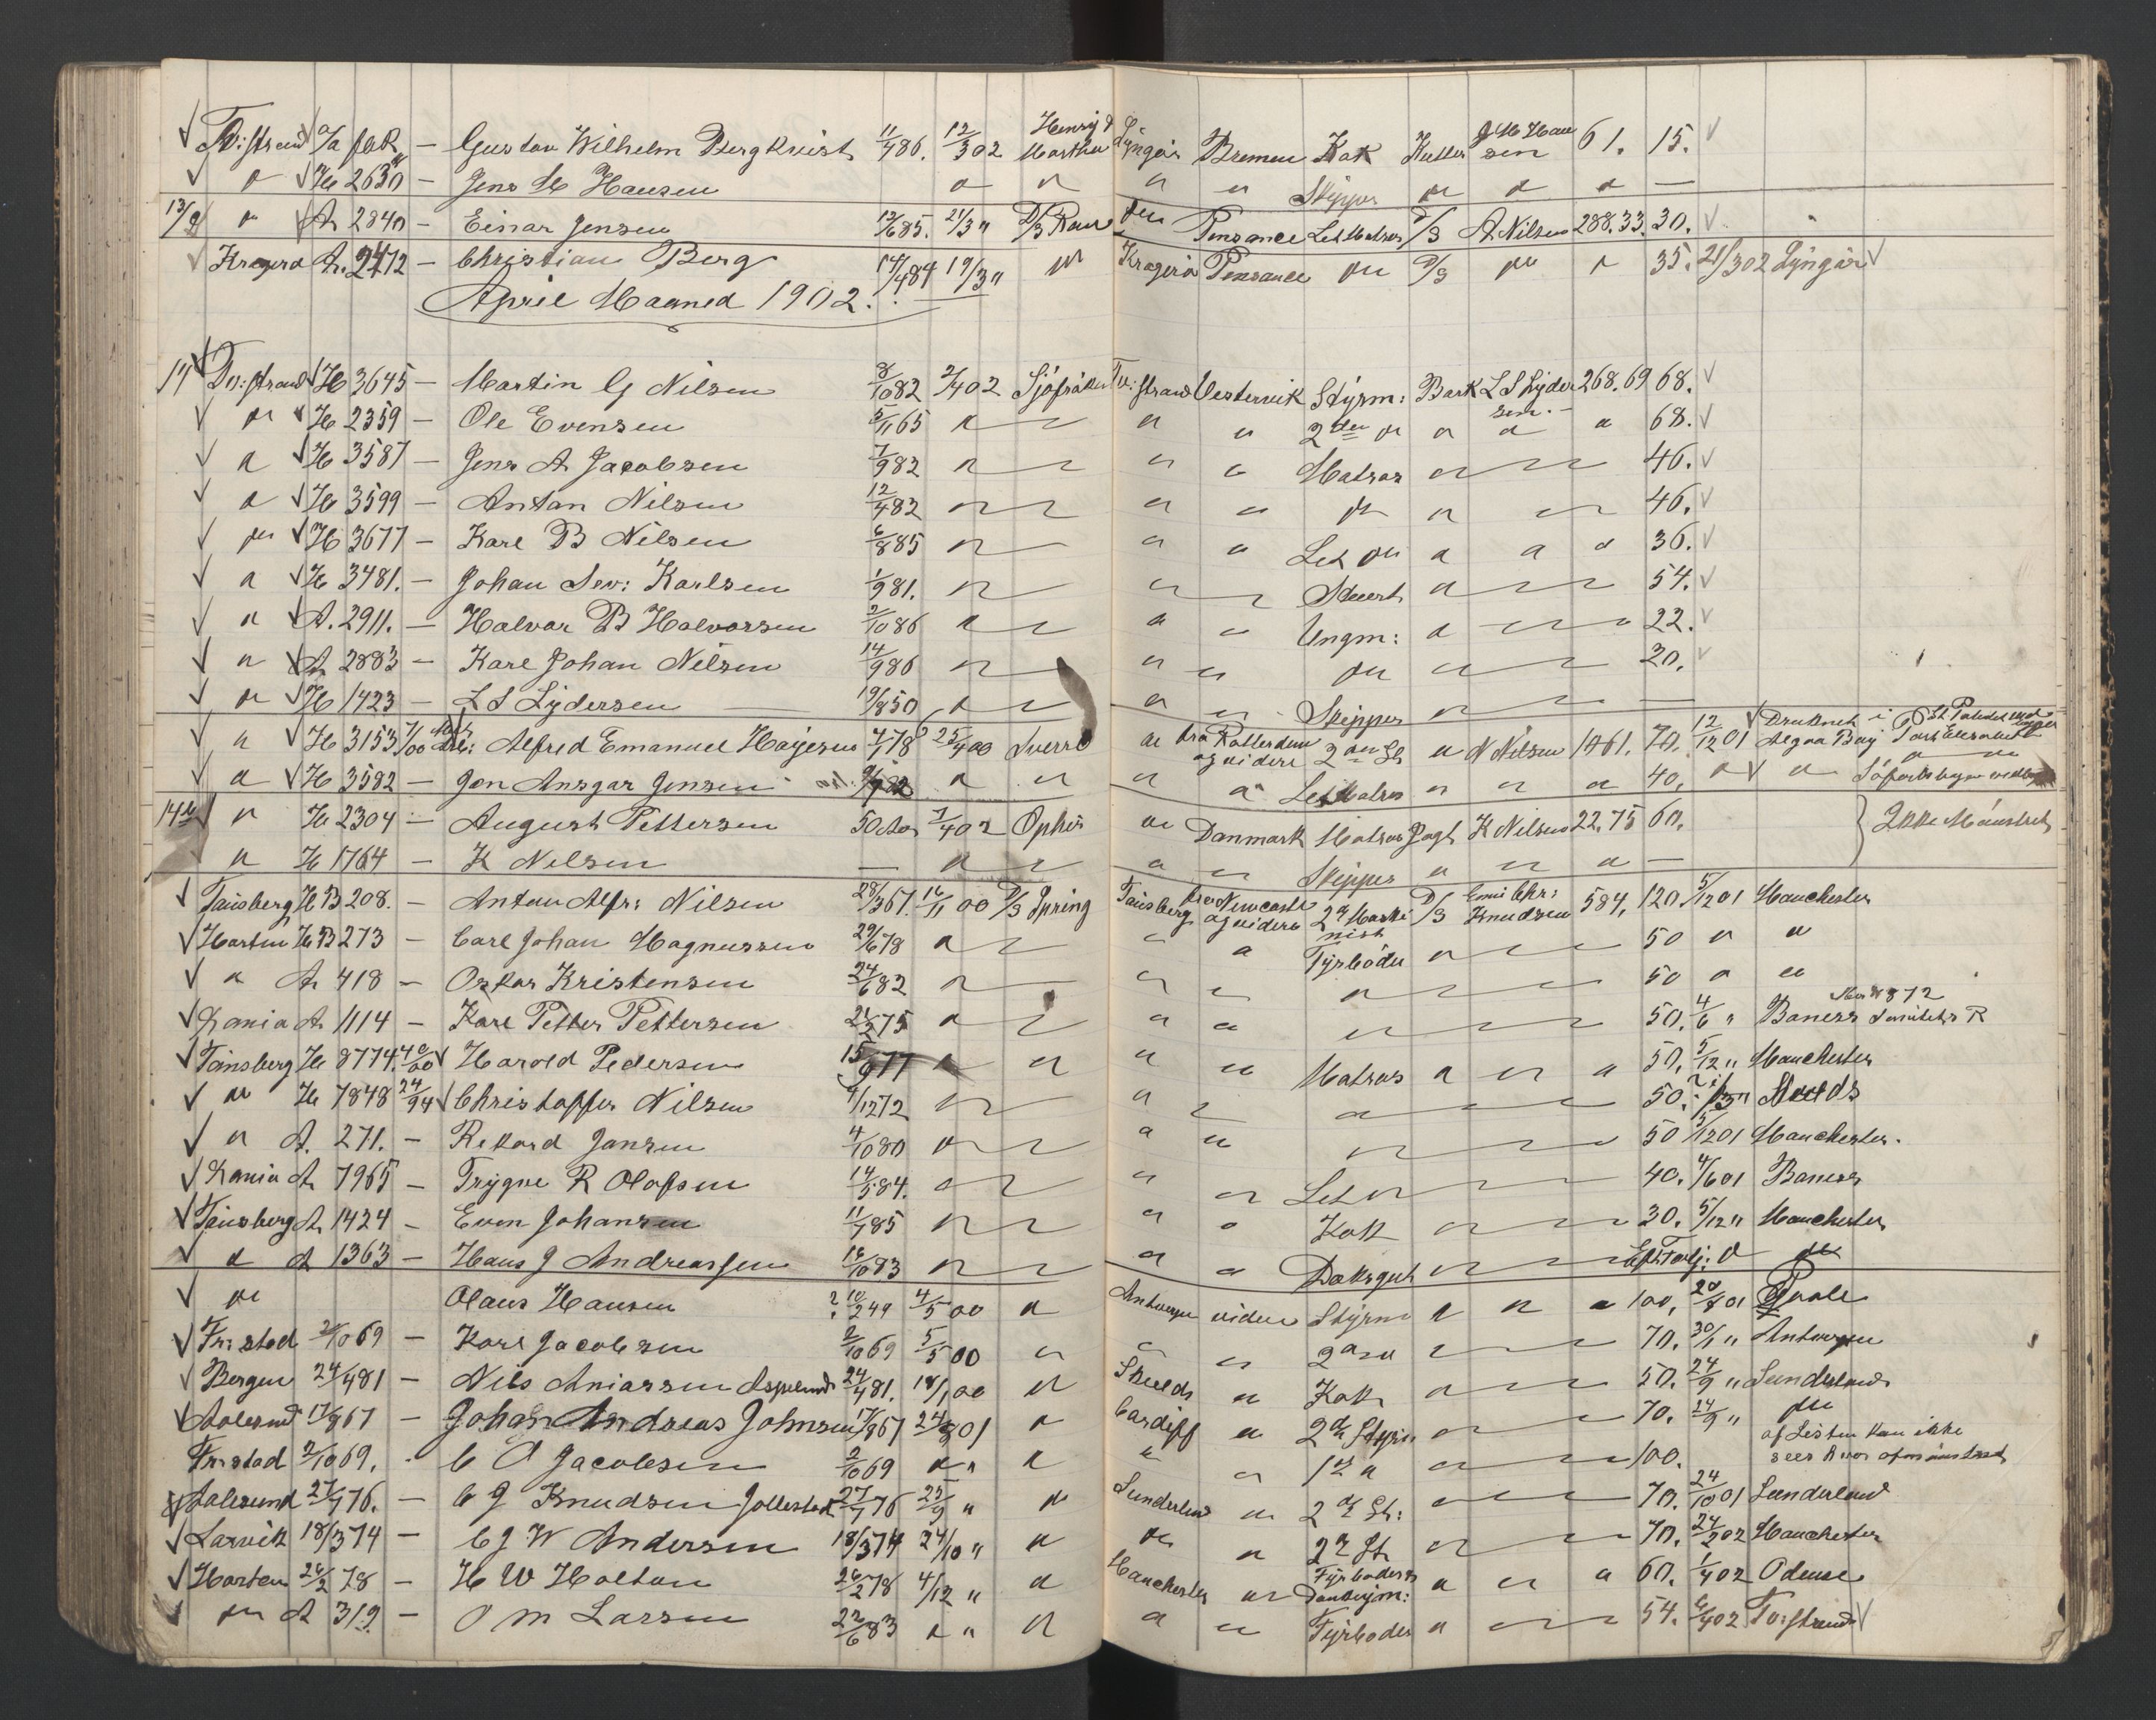 Tv:strand Gustav Wilhelm Bergkvist 11/4 86. 12/3 02 Henrij & Martha Lyngør Bremen Kok Kutter J M Hansen 61. 15.
" H 2630 - Jens M Hansen " " " " Skipper " " " —
13/3 " A 2840 - Einar Jensen 13/6 85. 21/3 " D/S Ran " Penzance Let Matros D/S A Nilsen 288.33. 30.
Kragerø A. 2472 - Christian Berg 14/4 84 19/3 " " Kragerø Penzance " D/S " " 35. 21/3 02 Lyngør
April Maaned 1902.
Tv:strand H 3645 - Martin G Nilsen 8/10 82 2/4 02 Tv:strand Vestervik Styrm: Bark L S Lydersen 268.69 68.
" H 2359 - Ole Evensen 5/11 65 " " " 2den " " " " 68.
" H 3587 - Jens A Jacobsen 7/9 82 " " " Matros " 46.
" H 3599 - Anton Nilsen 12/4 82 " " " " " 46.
" H 3677 - Karl B Nilsen 6/8 85 " " " Let " " " " 36.
" H 3481. - Johan Sev: Karlsen 1/9 81. " " Stuert " 54.
" A. 2911. - Halvar B Halvorsen 2/10 86 " " " Ungm: " 22.
" A 2883 - Karl Johan Nilsen 14/9 86 " " " " " 20.
" H 1423 - L S Lydersen 19/8 50 " " " Skipper " —
" H 3153 Alfred Emanuel Hoyesen 4/1 78 25/4 00 Sverre " fra Rotterdam og videre 2den St " N Nilsen 1461. 70. 12/12 01 Druknet i Algoa Bay Port Elisabeth
" H 3582 - Jon Ansgar Jensen " " " " Let Matros " " " 40. " "
14/4 " H 2304 - August Pettersen 50 Aar 3/4 02 Ophir " Danmark Matros Jagt K Nilsen 22.75 60. Ikke Mønstret
" H 1764 - K Nilsen — " " " Skipper " " " —
Tønsberg H B 208. - Anton Alfr: Nilsen 28/3 67. 16/11 00 D/S Spring Tønsberg fra Newcastle og videre 2d Maskinist D/S Chr: Knudsen 584. 120. 5/12 01 Manchester
Horten H B 273 - Carl Johan Magnussen 29/6 78 " " " Fyrbøder " 50 " "
" A 418 - Oskar Kristensen 24/6 82 " " " " 50 " "
Kania A 1114 - Karl Petter Pettersen 75 " " " " 50. 4/6 " Baness
Tønsberg H 8774. Harold Pedersen 15/9 77 " " " " Matros " " " 50. 5/12 " Manchester
" H 7848 24/94 Christoffer Nilsen 4/12 72 " " " 50.
" A. 271. - Rikard Jansen 4/10 80 " " " " 50 5/12 01 Manchester.
Kania A 7965 - Trygve R Olafsen 14/5 84. " " " Let " 40. 4/6 01 Baness
Tønsberg A 1424 - Even Johansen 11/7 85 " " " Kok " 30. 5/12 " Manchester
" A 1363 - Hans J Andreassen 16/10 83 " " " Daksgut " "
" Olaus Hansen ? 10/2 49 4/5 00 " Antwerpen videre Styrm " " " 100. 01 Poole
Fr:stad 2/10 69 - Karl Jacobsen 2/10 69 5/5 00 " " " 2den " 70. 30/1 " Antwerpen
Bergen 24/4 81 - Nils Aniassen Aspelund 24/4 81. 18/1 00 " Shields " Kok " 50. 24/9 " Sunderland
Aalesund 17/9 67 - Johan Andreas Johnsen 17/9 67 24/9 01 " Cardiff " 2d Styrm " 70. 24/9 " "
Fr:stad 2/10 69. - C O Jacobsen 2/10 69 " " " " " 1st " " 100. af Listen kan ikke sees hvor afmønstred
Aalesund 27/7 76. - C J Knudsen Jollestad 27/7 76 25/9 " " Sunderland " 2d St: " 70. 24/10 01 Sunderland
Larvik 18/3 74 - C J W Andersen 18/3 74 24/10 " " " " 2d St " 70. 24/2 02 Manchester
Horten 26/2 78 - H W Holton 26/2 78 4/12 " " Manchester " Fyrbøder & Donkeym: " " " 60. 1/4 02 Odense
" A 319. - O M Larsen 22/6 83 " " " " " Fyrbøder " 54. 6/4 02 Tv:strand